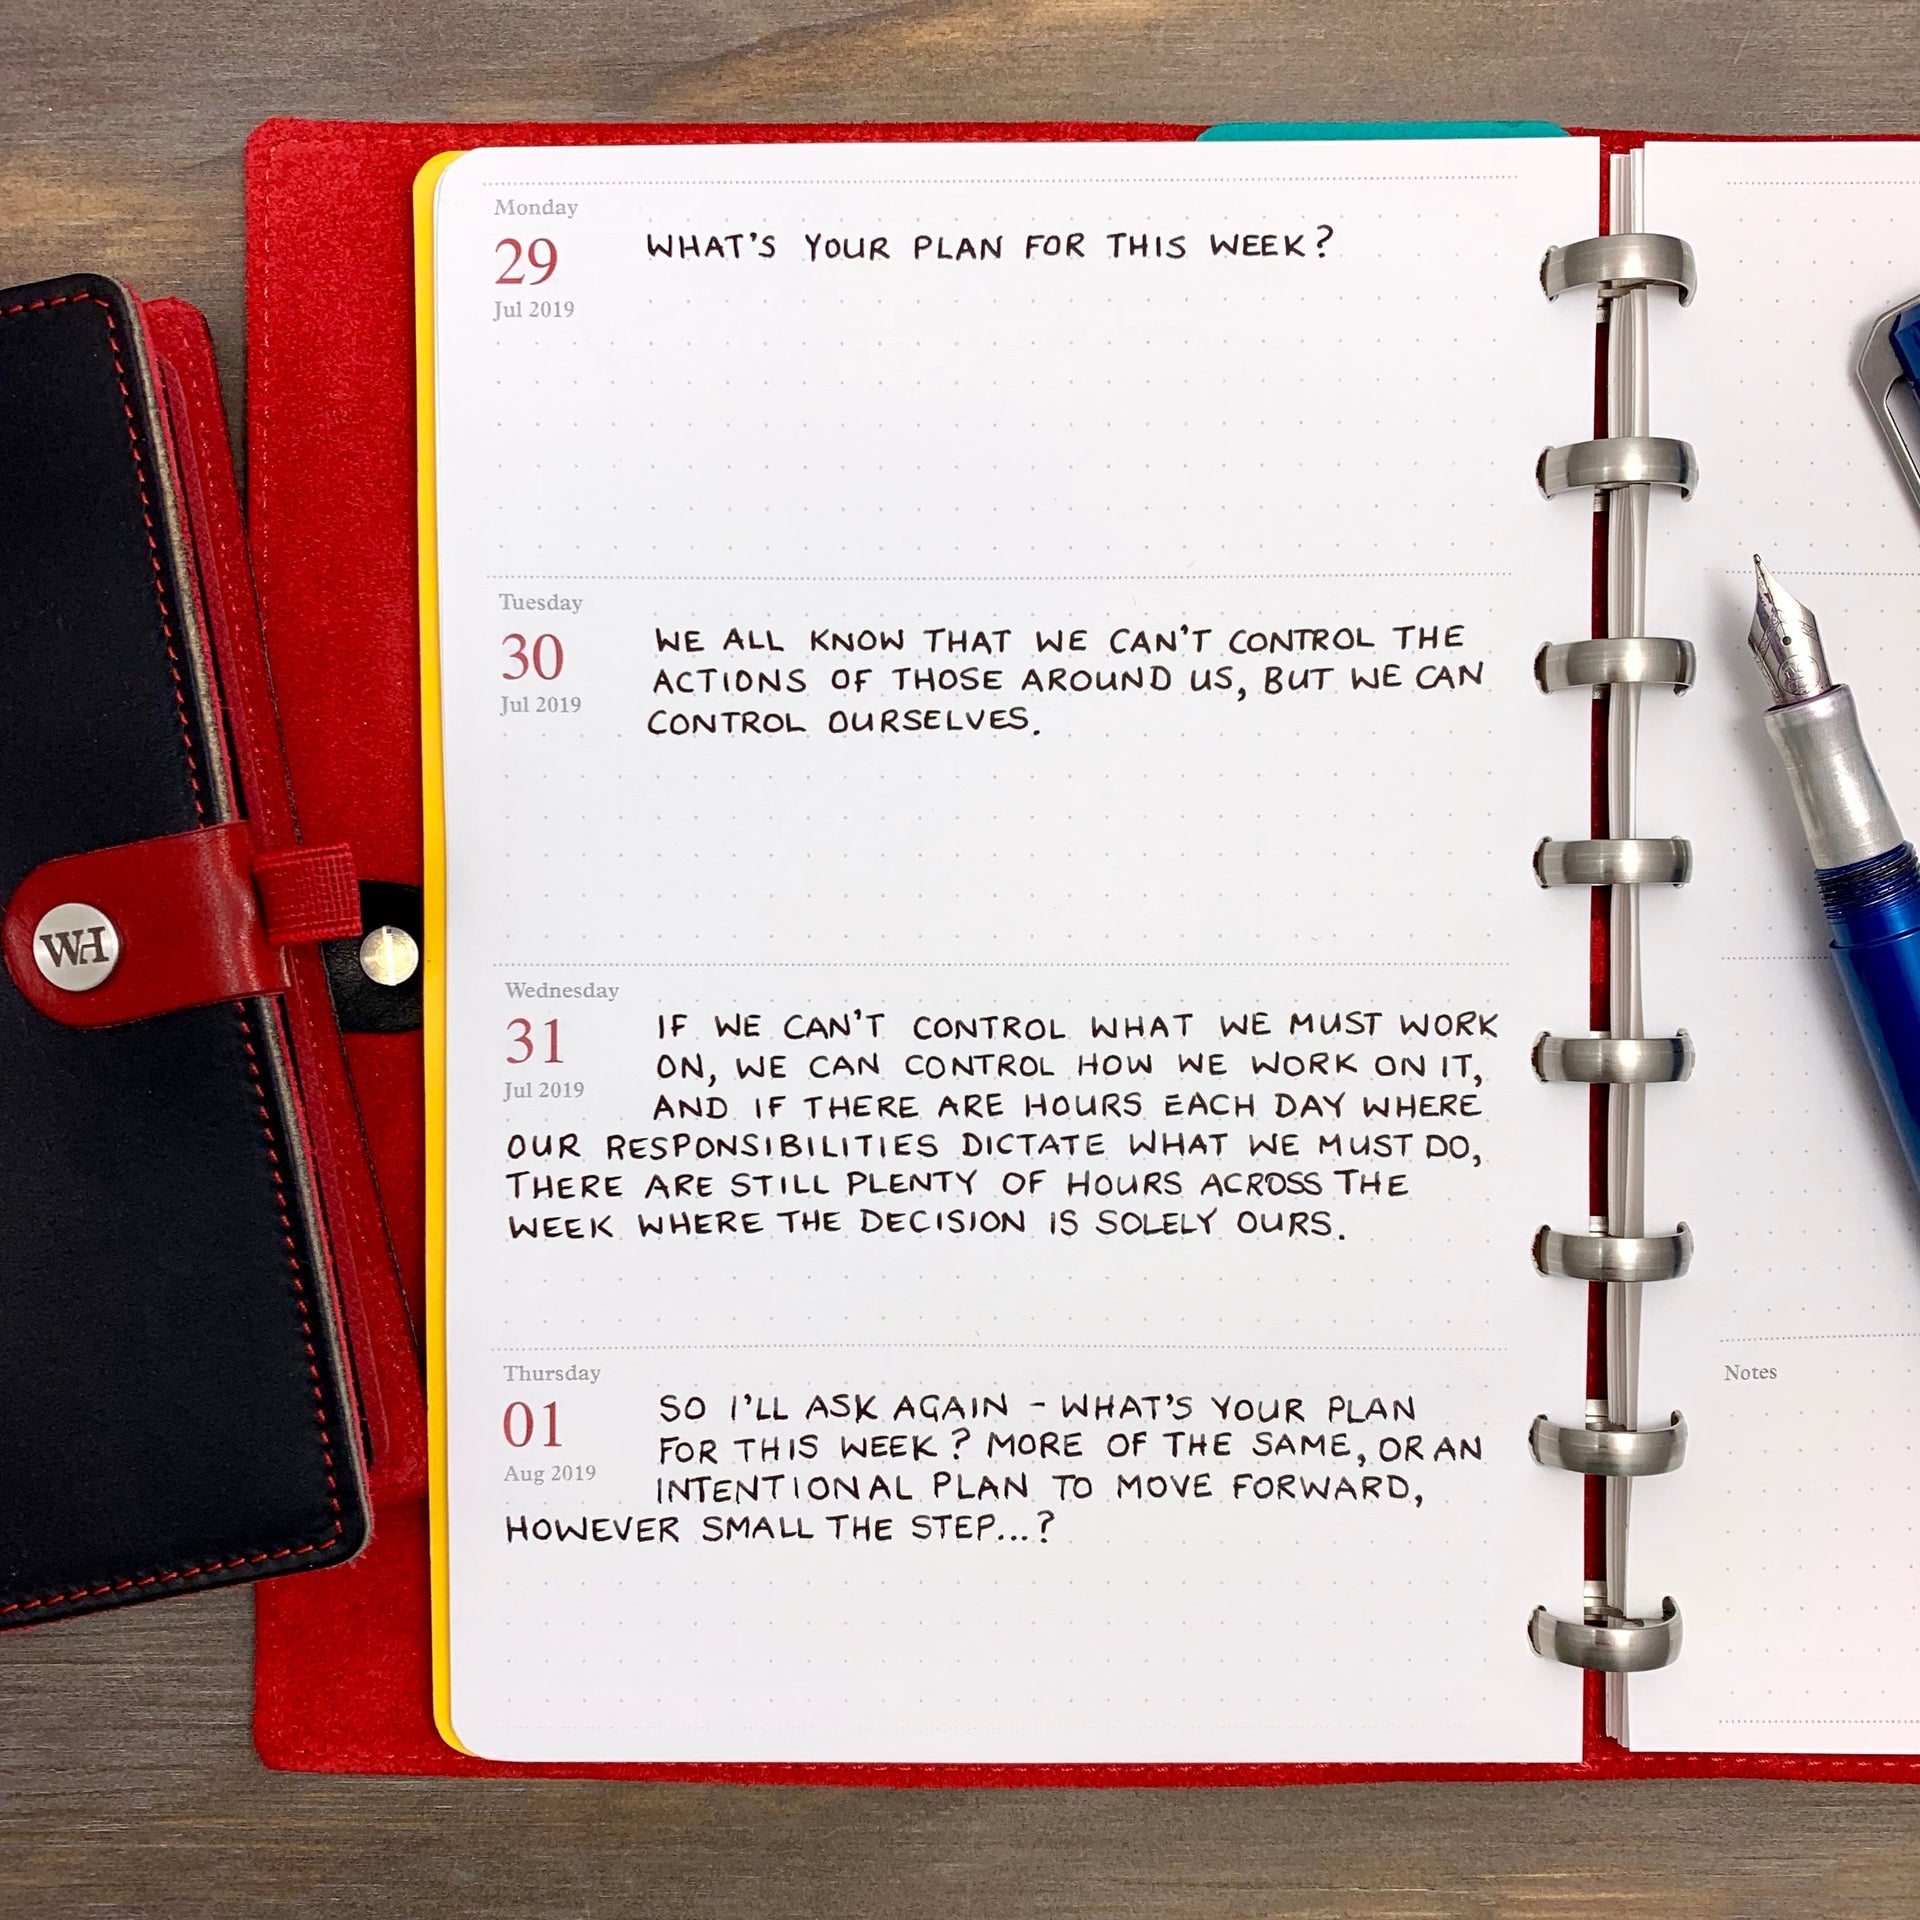 Monday
29
Jul 2019
WHAT'S YOUR PLAN FOR THIS WEEK?
Tuesday
30
Jul 2019
WE ALL KNOW THAT WE CAN'T CONTROL THE
ACTIONS OF THOSE AROUND US, BUT WE CAN
CONTROL OURSELVES.
Wednesday
31
Jul 2019
IF WE CAN'T CONTROL WHAT WE MUST WORK
ON, WE CAN CONTROL HOW WE WORK ON IT,
AND IF THERE ARE HOURS EACH DAY WHERE
OUR RESPONSIBILITIES DICTATE WHAT WE MUST DO,
THERE ARE STILL PLENTY OF HOURS ACROSS THE
WEEK WHERE THE DECISION IS SOLELY OURS.
Thursday
01
Aug 2019
SO I'LL ASK AGAIN - WHAT'S YOUR PLAN
FOR THIS WEEK? MORE OF THE SAME, OR AN
INTENTIONAL PLAN TO MOVE FORWARD,
HOWEVER SMALL THE STEP...?
Notes
WH